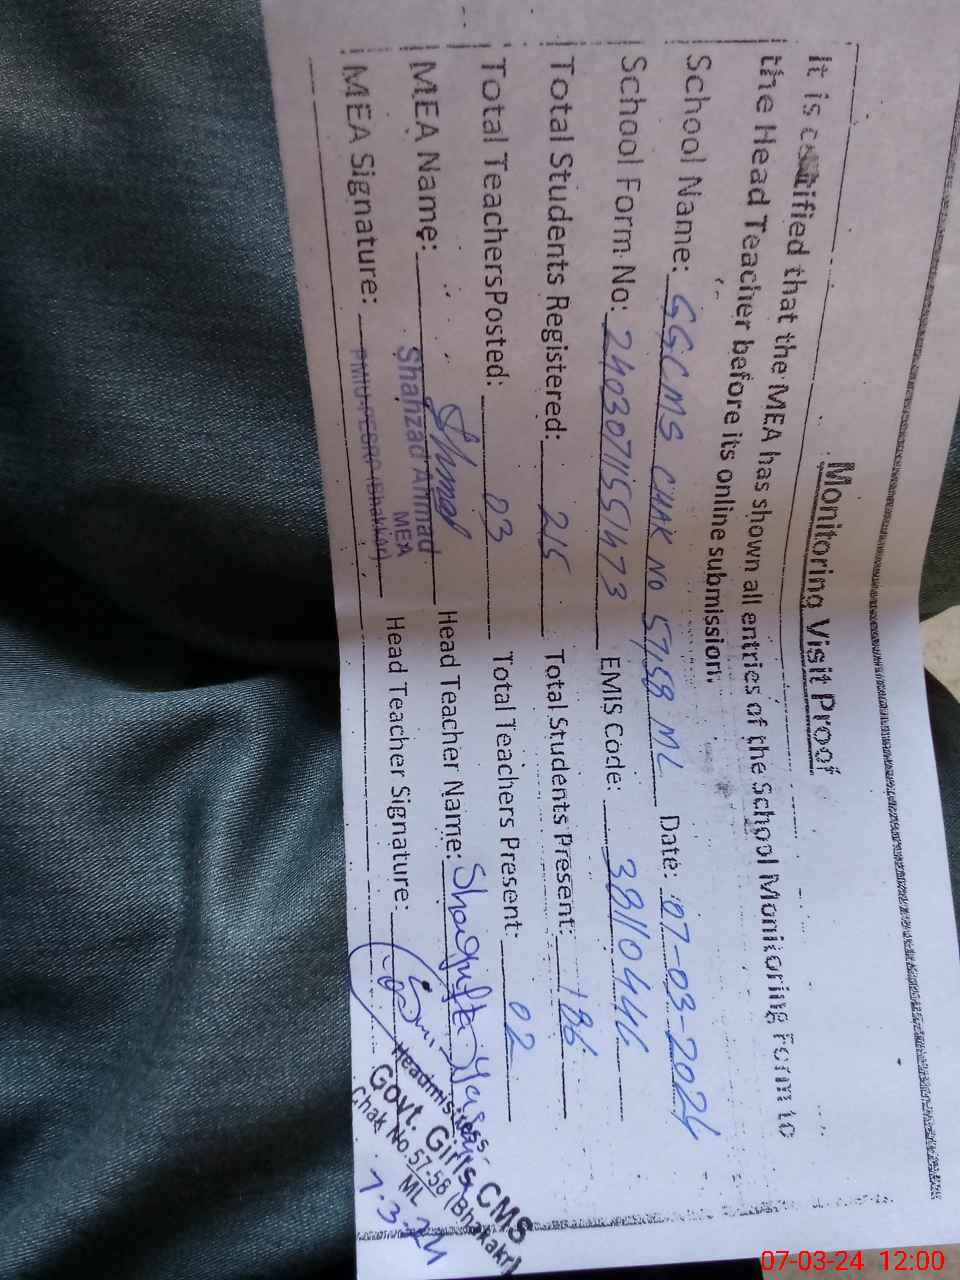 Monitoring Visit Proof
It is certified that the MEA has shown all entries of the School Monitoring Form to
the Head Teacher before its online submission.
School Name: GGCMS CHAK NO 57/58 ML Date: 07-03-2024
School Form No: 24030711551473 EMIS Code: 38110446
Total Students Registered: 215 Total Students Present: 186
Total TeachersPosted: 03 Total Teachers Present: 02
MEA Name: Shahzad Ahmad Head Teacher Name: Shagufta Yasmin
MEA
MEA Signature: PMIU-PESRP (Bhakkar) Head Teacher Signature:
Headmistress
Govt. Girls CMS
Chak No.57-58 (Bhakakr)
ML
7-3-24
07-03-24 12:00